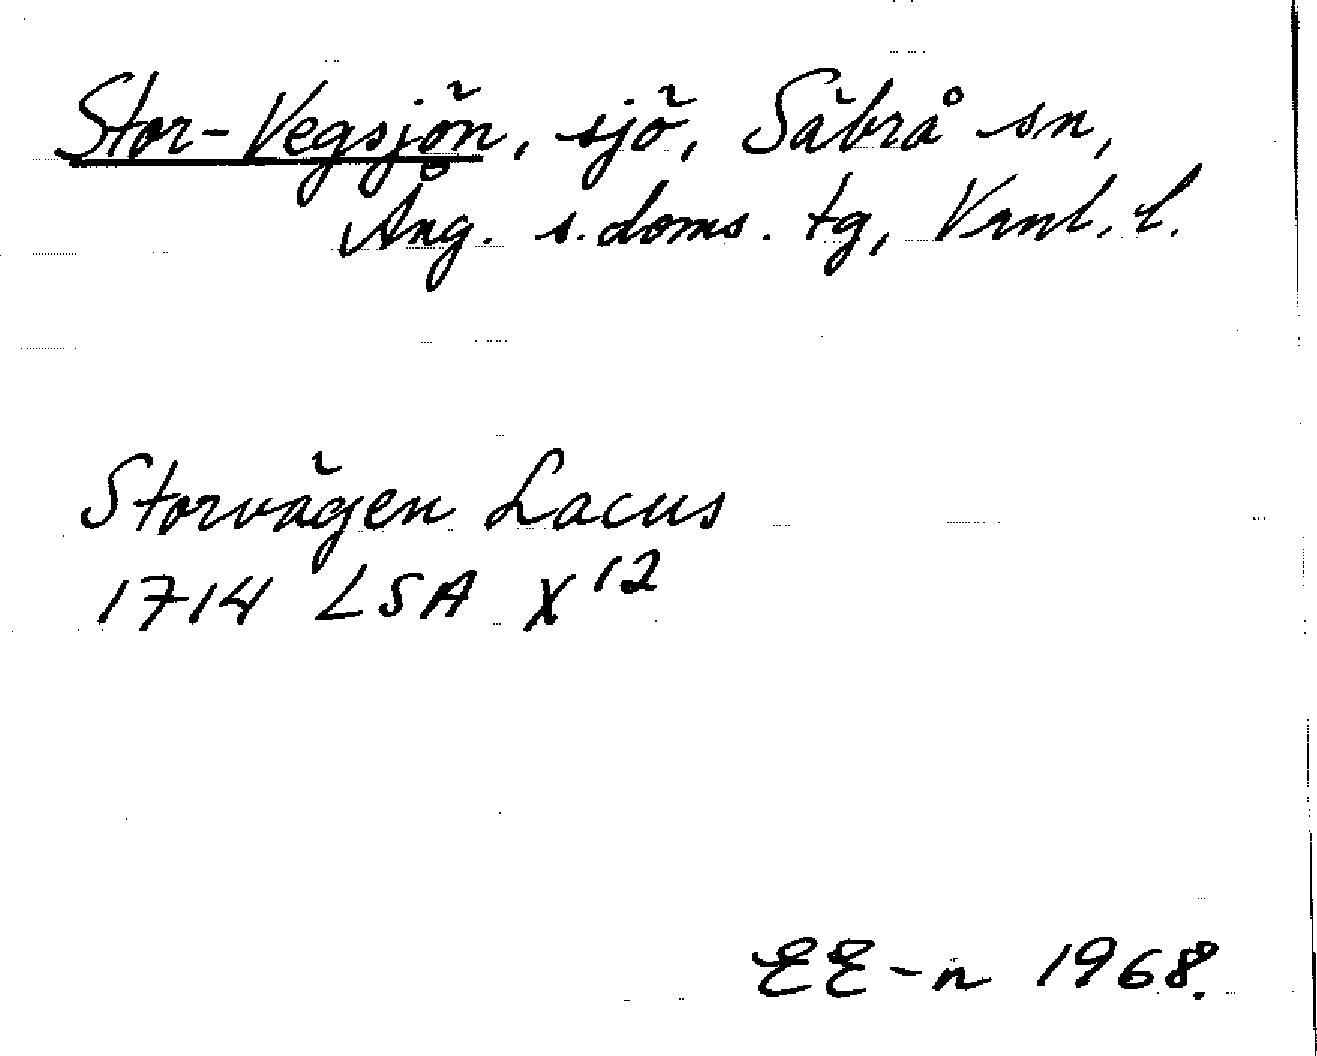 Stor-Vegsjön, sjö, Säbrå sn,
Ång. s. doms. tg, Vrnl. l.
Storvägen Lacus
1714 LSA X 12
EE-n 1968.